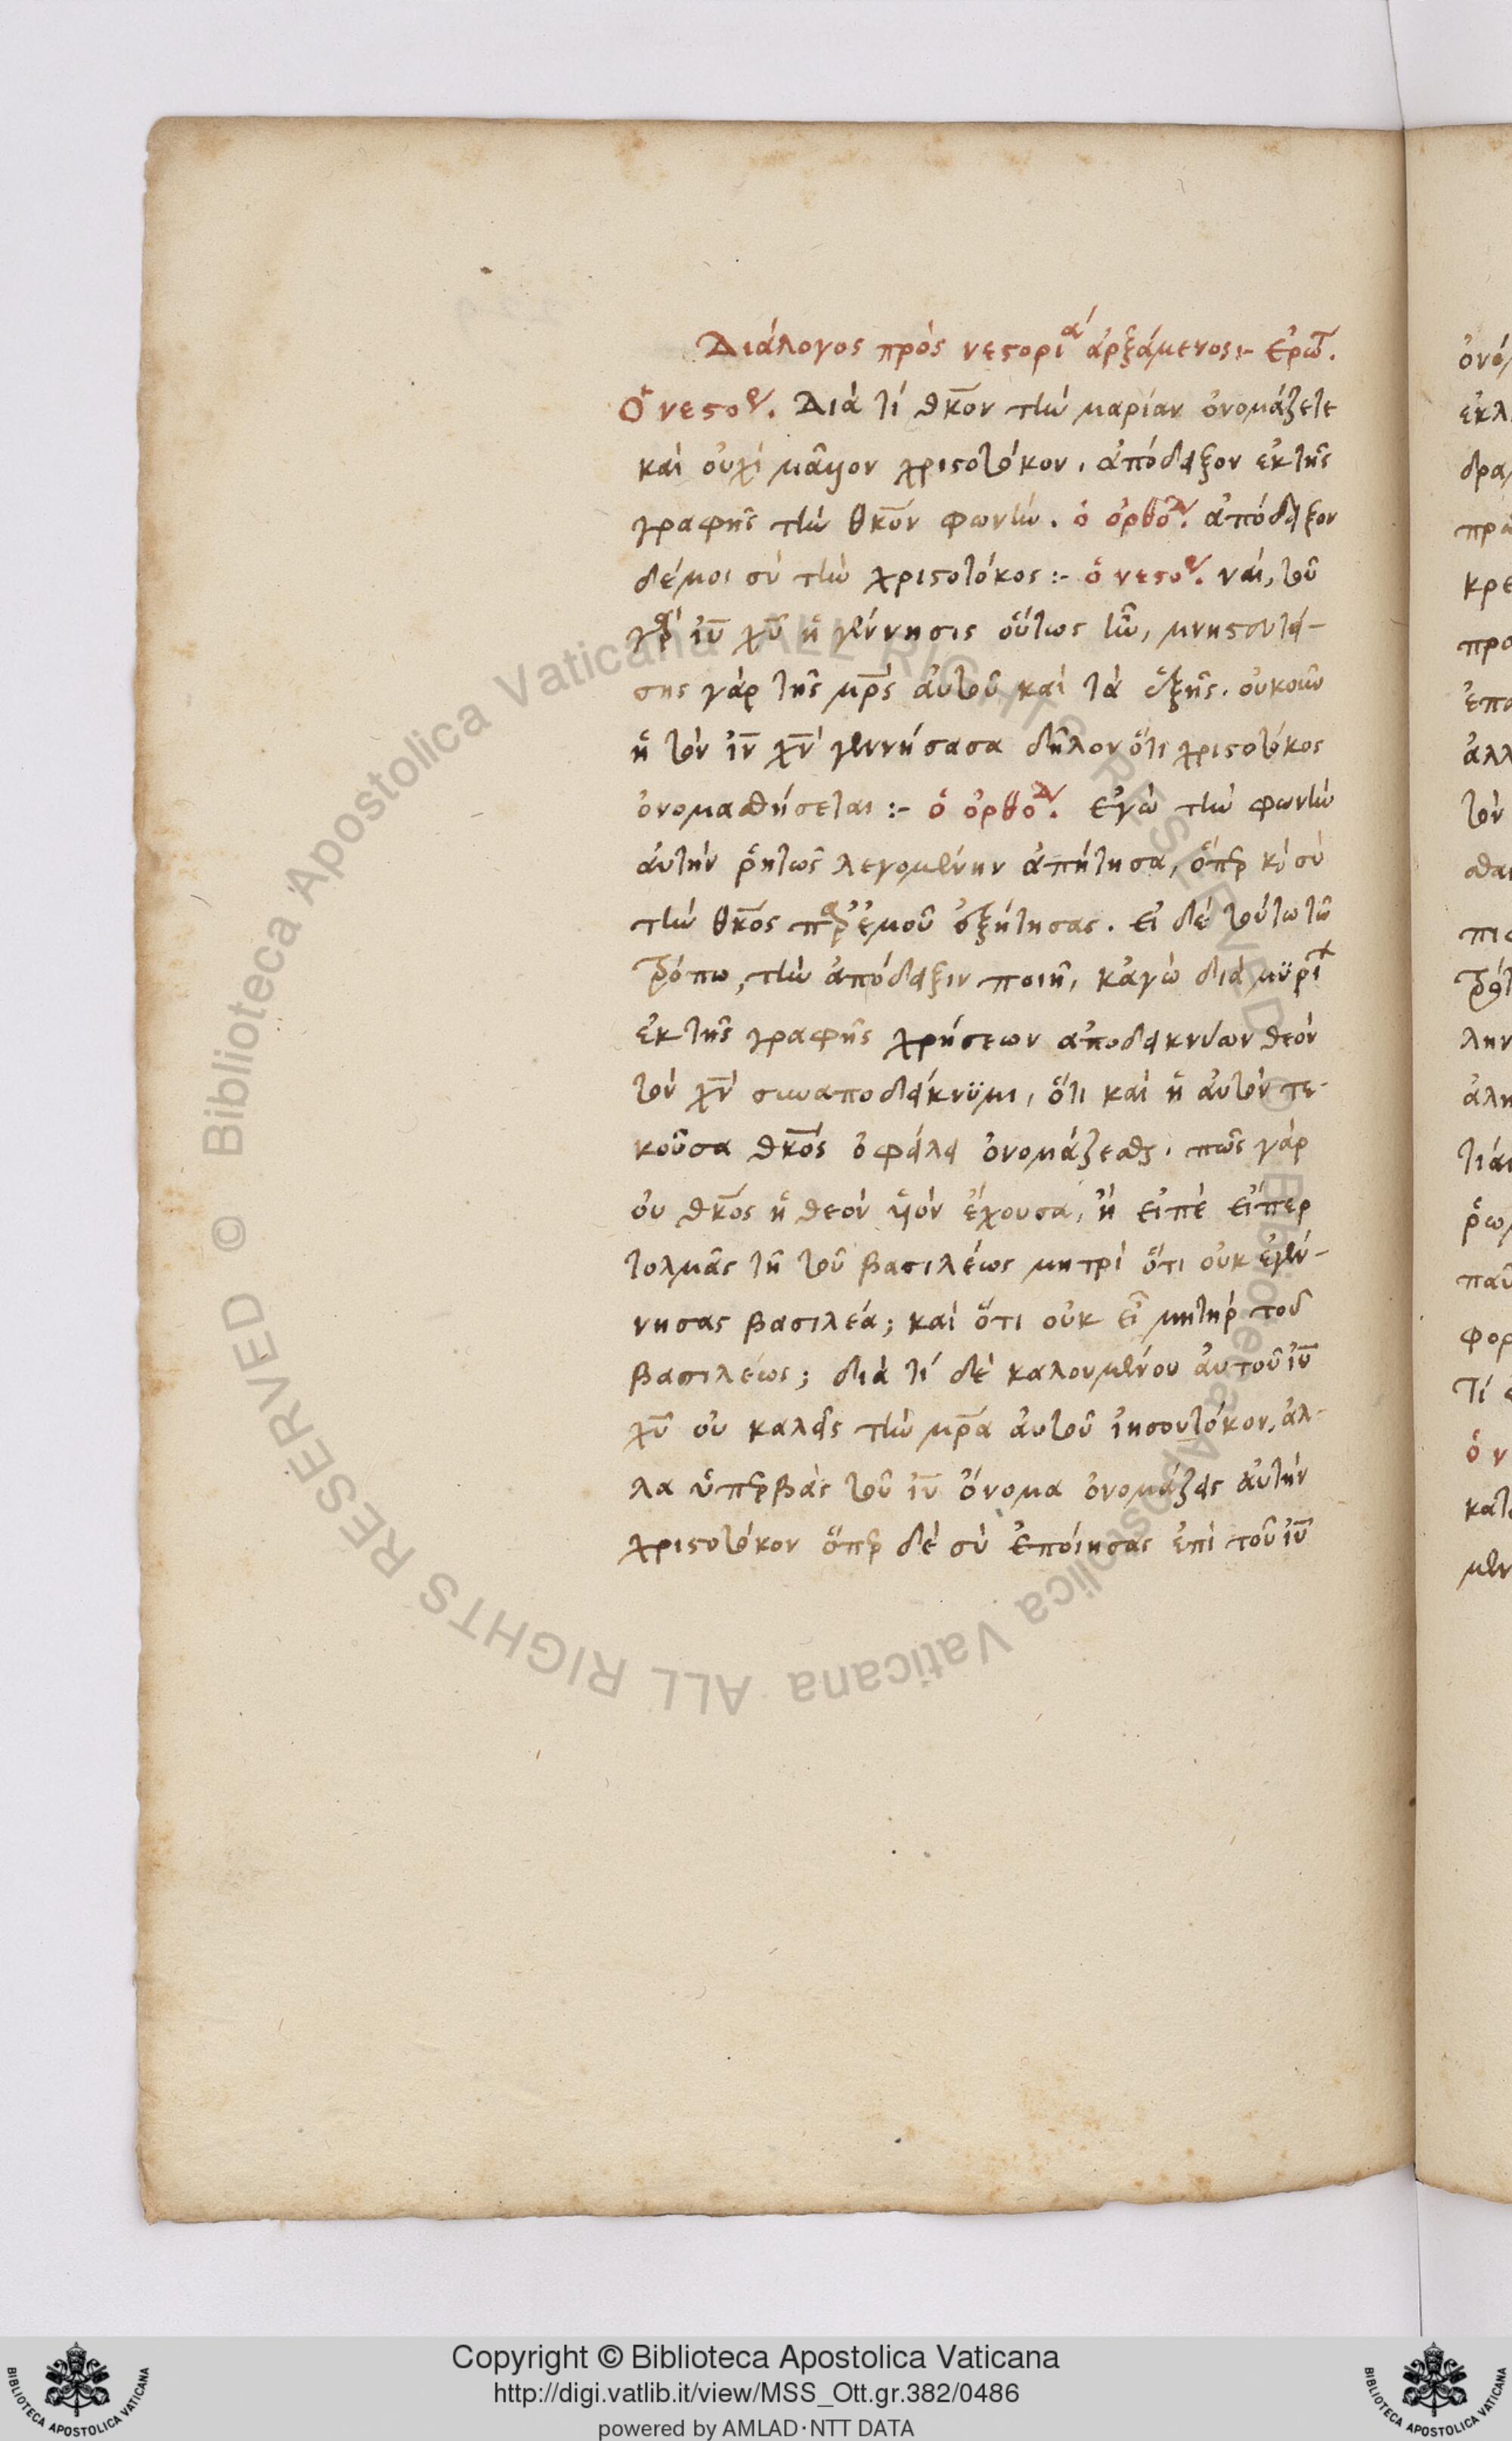 Διάλογος πρὸς νεστορια ἀρξάμενος:- ἐρωτ.
Ὁ νεστορ. Διὰ τί θκον τὴν μαρίαν ὀνομάζετε
καὶ οὐχὶ μᾶλλον χριστοτόκον. ἀπόδειξον ἐκ τῆς
γραφῆς τὴν θκον φωνήν. ὁ ὀρθοδ. ἀπόδειξον
δέ μοι σὺ τὴν χριστοτόκος:- ὁ νεστορ. ναί, τοῦ
γὰρ ιυ χυ ἡ γέννησις οὕτως ἦν, μνηστευθεί-
σης γὰρ τῆς μρς αὐτοῦ καὶ τὰ ἑξῆς. οὐκοῦν
ἡ τὸν ιν χν γεννήσασα δῆλον ὅτι χριστοτόκος
ὀνομασθήσεται:- ὁ ὀρθοδ. ἐγὼ τὴν φωνὴν
αὐτὴν ῥητῶς λεγομένην ἀπήτησα, ὅπερ κ σὺ
τὴν θκος παρ' ἐμοῦ ἐξήτησας. εἰ δὲ τούτω τῶ
τρόπω, τὴν ἀπόδειξιν ποιῆ, κἀγὼ διὰ μυρί
ἐκ τῆς γραφῆς χρήσεων ἀποδεικνύων θεὸν
τὸν χν συναποδείκνυμι, ὅτι καὶ ἡ αὐτὸν τε-
κοῦσα θκος ὀφείλει ὀνομάζεσθαι. πῶς γὰρ
οὐ θκος ἡ θεὸν υἱὸν ἔχουσα, ἢ εἰπὲ εἴπερ
τολμᾶς τῆ τοῦ βασιλέως μητρὶ ὅτι οὐκ ἐγέν-
νησας βασιλέα; καὶ ὅτι οὐκ εἶ μήτηρ τοῦ
βασιλέως; διὰ τί δὲ καλουμένου αὐτοῦ ιυ
χυ οὐ καλεῖς τὴν μρα αὐτοῦ ἰησουτόκον, ἀλ-
λα ὑπερβὰς τοῦ ιυ ὄνομα ὀνομάζεις αὐτὴν
χριστοτόκον ὅπερ δὲ σὺ ἐποίησας ἐπὶ τοῦ ιυ
Copyright © Biblioteca Apostolica Vaticana
http://digi.vatlib.it/view/MSS_Ott.gr.382/0486
powered by AMLAD·NTT DATA
© Biblioteca Apostolica Vaticana ALL RIGHTS RESERVED
© Biblioteca Apostolica Vaticana ALL RIGHTS RESERVED
BIBLIOTECA APOSTOLICA VATICANA
BIBLIOTECA APOSTOLICA VATICANA